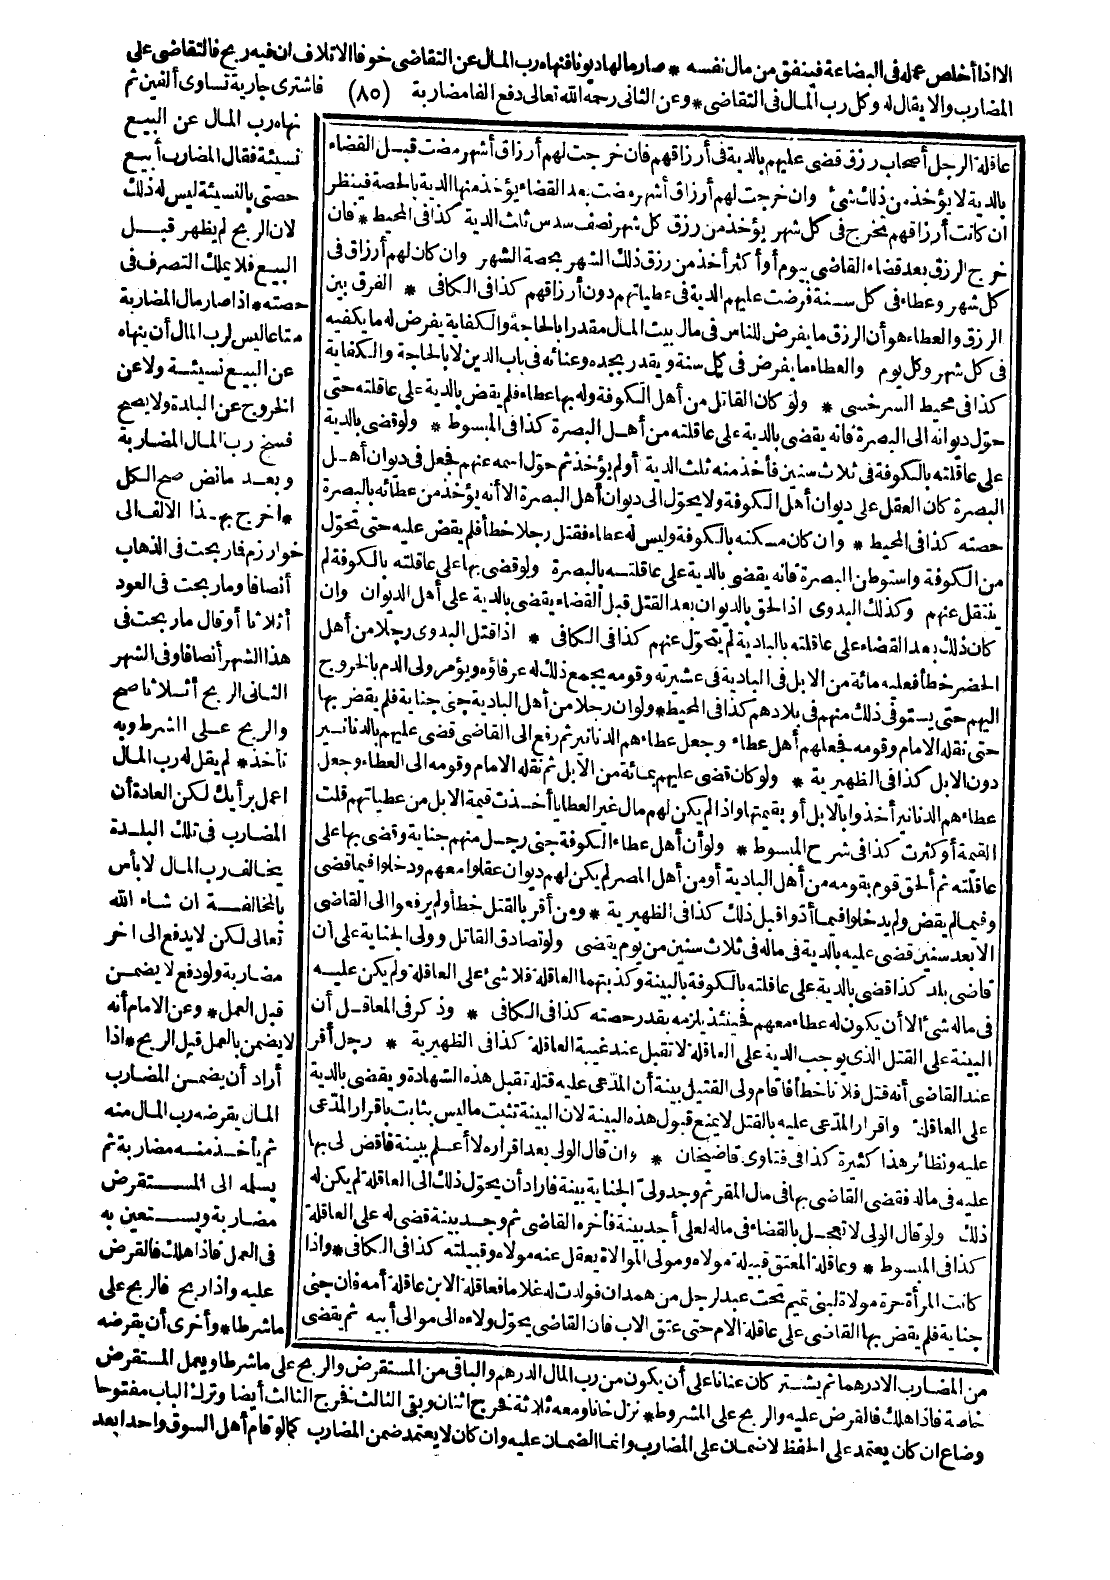 الا اذا أخلص عمله فى البضاعة فينفق من مال نفسه * صار مالها ديونا فنهاه رب المال عن التقاضى خوفا الاتلاف ان فيه ربح فالتقاضى على
المضارب والا يقال له وكل رب المال فى التقاضى * وعن الثانى رحمه الله تعالى دفع الفا مضاربة (٨٥) فاشترى جارية تساوى ألفين ثم
نهاه رب المال عن البيع
نسيئة فقال المضارب أبيع
حصتى بالنسيئة ليس له ذلك
لان الربح لم يظهر قبل
البيع فلا يملك التصرف فى
حصته * اذا صار مال المضاربة
متاعا ليس لرب المال أن ينهاه
عن البيع نسيئة ولا عن
الخروج عن البلدة ولا يصح
فسخ رب المال المضاربة
وبعد ما نض صح الكل
* اخرج بهذا الالف الى
خوارزم فما ربحت فى الذهاب
أنصافا وما ربحت فى العود
أثلاثا أو قال ما ربحت فى
هذا الشهر أنصافا وفى الشهر
الثانى الربح أثلاثا صح
والربح على الشرط وبه
نأخذ * لم يقل له رب المال
اعمل برأيك لكن العادة أن
المضارب فى تلك البلدة
يخالف رب المال لا بأس
بالمخالفة ان شاء الله
تعالى لكن لا يدفع الى اخر
مضاربة ولو دفع لا يضمن
قبل العمل * وعن الامام أنه
لا يضمن بالعمل قبل الربح * اذا
أراد أن يضمن المضارب
المال يقرضه رب المال منه
ثم يأخذ منه مضاربة ثم
يسلمه الى المستقرض
مضاربة ويستعين به
فى العمل فاذا هلك فالقرض
عليه واذا ربح فالربح على
ما شرطا * وأخرى أن يقرضه
عاقلة الرجل أصحاب رزق قضى عليهم بالدية فى أرزاقهم فان خرجت لهم أرزاق أشهر مضت قبل القضاء
بالدية لا يؤخذ من ذلك شئ وان خرجت لهم أرزاق أشهر مضت بعد القضاء يؤخذ منها الدية بالحصة فينظر
ان كانت أرزاقهم تخرج فى كل شهر يؤخذ من رزق كل شهر نصف سدس ثلث الدية كذا فى المحيط * فان
خرج الرزق بعد قضاء القاضى بيوم أو أكثر أخذ من رزق ذلك الشهر بحصة الشهر وان كان لهم أرزاق فى
كل شهر وعطاء فى كل سنة فرضت عليهم الدية فى عطياتهم دون أرزاقهم كذا فى الكافى * الفرق بين
الرزق والعطاء هو أن الرزق ما يفرض للناس فى مال بيت المال مقدرا بالحاجة والكفاية يفرض له ما يكفيه
فى كل شهر وكل يوم والعطاء ما يفرض فى كل سنة ويقدر بجده وعنائه فى باب الدين لا بالحاجة والكفاية
كذا فى محيط السرخسى * ولو كان القاتل من أهل الكوفة وله بها عطاء فلم يقض بالدية على عاقلته حتى
حول ديوانه الى البصرة فانه يقضى بالدية على عاقلته من أهل البصرة كذا فى المبسوط * ولو قضى بالدية
على عاقلته بالكوفة فى ثلاث سنين فأخذ منه ثلث الدية أو لم يؤخذ ثم حول اسمه عنهم فجعل فى ديوان أهل
البصرة كان العقل على ديوان أهل الكوفة ولا يحول الى ديوان أهل البصرة الا أنه يؤخذ من عطائه بالبصرة
حصته كذا فى المحيط * وان كان مسكنه بالكوفة وليس له عطاء فقتل رجلا خطأ فلم يقض عليه حتى تحول
من الكوفة واستوطن البصرة فانه يقضى بالدية على عاقلته بالبصرة ولو قضى بها على عاقلته بالكوفة لم
ينتقل عنهم وكذلك البدوى اذا لحق بالديوان بعد القتل قبل القضاء يقضى بالدية على أهل الديوان وان
كان ذلك بعد القضاء على عاقلته بالبادية لم يتحول عنهم كذا فى الكافى * اذا قتل البدوى رجلا من أهل
الحضر خطأ فعليه مائة من الابل فى البادية فى عشيرته وقومه يجمع ذلك له عرفاؤه ويؤمر ولى الدم بالخروج
اليهم حتى يستوفى ذلك منهم فى بلادهم كذا فى المحيط * ولو ان رجلا من أهل البادية جنى جناية فلم يقض بها
حتى نقله الامام وقومه فجعلهم أهل عطاء وجعل عطاءهم الدنانير ثم رفع الى القاضى قضى عليهم بالدنانير
دون الابل كذا فى الظهيرية * ولو كان قضى عليهم بمائة من الابل ثم نقله الامام وقومه الى العطاء وجعل
عطاءهم الدنانير أخذوا بالابل أو بقيمتها واذا لم يكن لهم مال غير العطايا أخذت قيمة الابل من عطياتهم قلت
القيمة أو كثرت كذا فى شرح المبسوط * ولو أن أهل عطاء الكوفة جنى رجل منهم جناية وقضى بها على
عاقلته ثم ألحق قوم بقومه من أهل البادية أو من أهل المصر لم يكن لهم ديوان عقلوا معهم ودخلوا فيما قضى
وفيما لم يقض ولم يدخلوا فيما أدوا قبل ذلك كذا فى الظهيرية * ومن أقر بالقتل خطأ ولم يرفعوا الى القاضى
الا بعد سنين قضى عليه بالدية فى ماله فى ثلاث سنين من يوم يقضى ولو تصادق القاتل وولى الجناية على أن
قاضى بلد كذا قضى بالدية على عاقلته بالكوفة بالبينة وكذبتهما العاقلة فلا شئ على العاقلة ولم يكن عليه
فى ماله شئ الا أن يكون له عطاء معهم فحينئذ يلزمه بقدر حصته كذا فى الكافى * وذكر فى المعاقل أن
البينة على القتل الذى يوجب الدية على العاقلة لا تقبل عند غيبة العاقلة كذا فى الظهيرية * رجل أقر
عند القاضى أنه قتل فلانا خطأ فأقام ولى القتيل بينة أن المدعى عليه قتله تقبل هذه الشهادة ويقضى بالدية
على العاقلة واقرار المدعى عليه بالقتل لا يمنع قبول هذه البينة لان البينة تثبت ما ليس بثابت باقرار المدعى
عليه ونظائر هذا كثيرة كذا فى فتاوى قاضيخان * وان قال الولى بعد اقراره لا أعلم بينة فاقض لى بها
عليه فى ماله فقضى القاضى بها فى مال المقر ثم وجد ولى الجناية بينة فاراد أن يحول ذلك الى العاقلة لم يكن له
ذلك ولو قال الولى لا تعجل بالقضاء فى ماله لعلى أجد بينة فأخره القاضى ثم وجد بينة قضى له على العاقلة
كذا فى المبسوط * وعاقلة المعتق قبيلة مولاه ومولى الموالاة يعقل عنه مولاه وقبيلته كذا فى الكافى * واذا
كانت المرأة حرة مولاة لبنى تميم تحت عبد لرجل من همدان فولدت له غلاما فعاقلة الابن عاقلة أمه فان جنى
جناية فلم يقض بها القاضى على عاقلة الام حتى عتق الاب فان القاضى يحول ولاءه الى موالى أبيه ثم يقضى
من المضارب الا درهما ثم يشتركان عنانا على أن يكون من رب المال الدرهم والباقى من المستقرض والربح على ما شرطا ويعمل المستقرض
خاصة فاذا هلك فالقرض عليه والربح على المشروط * نزل خانا ومعه ثلاثة فخرج اثنان وبقى الثالث فخرج الثالث أيضا وترك الباب مفتوحا
وضاع ان كان يعتمد على الحفظ لا ضمان على المضارب وانما الضمان عليه وان كان لا يعتمد ضمن المضارب كما لو قام أهل السوق واحدا بعد